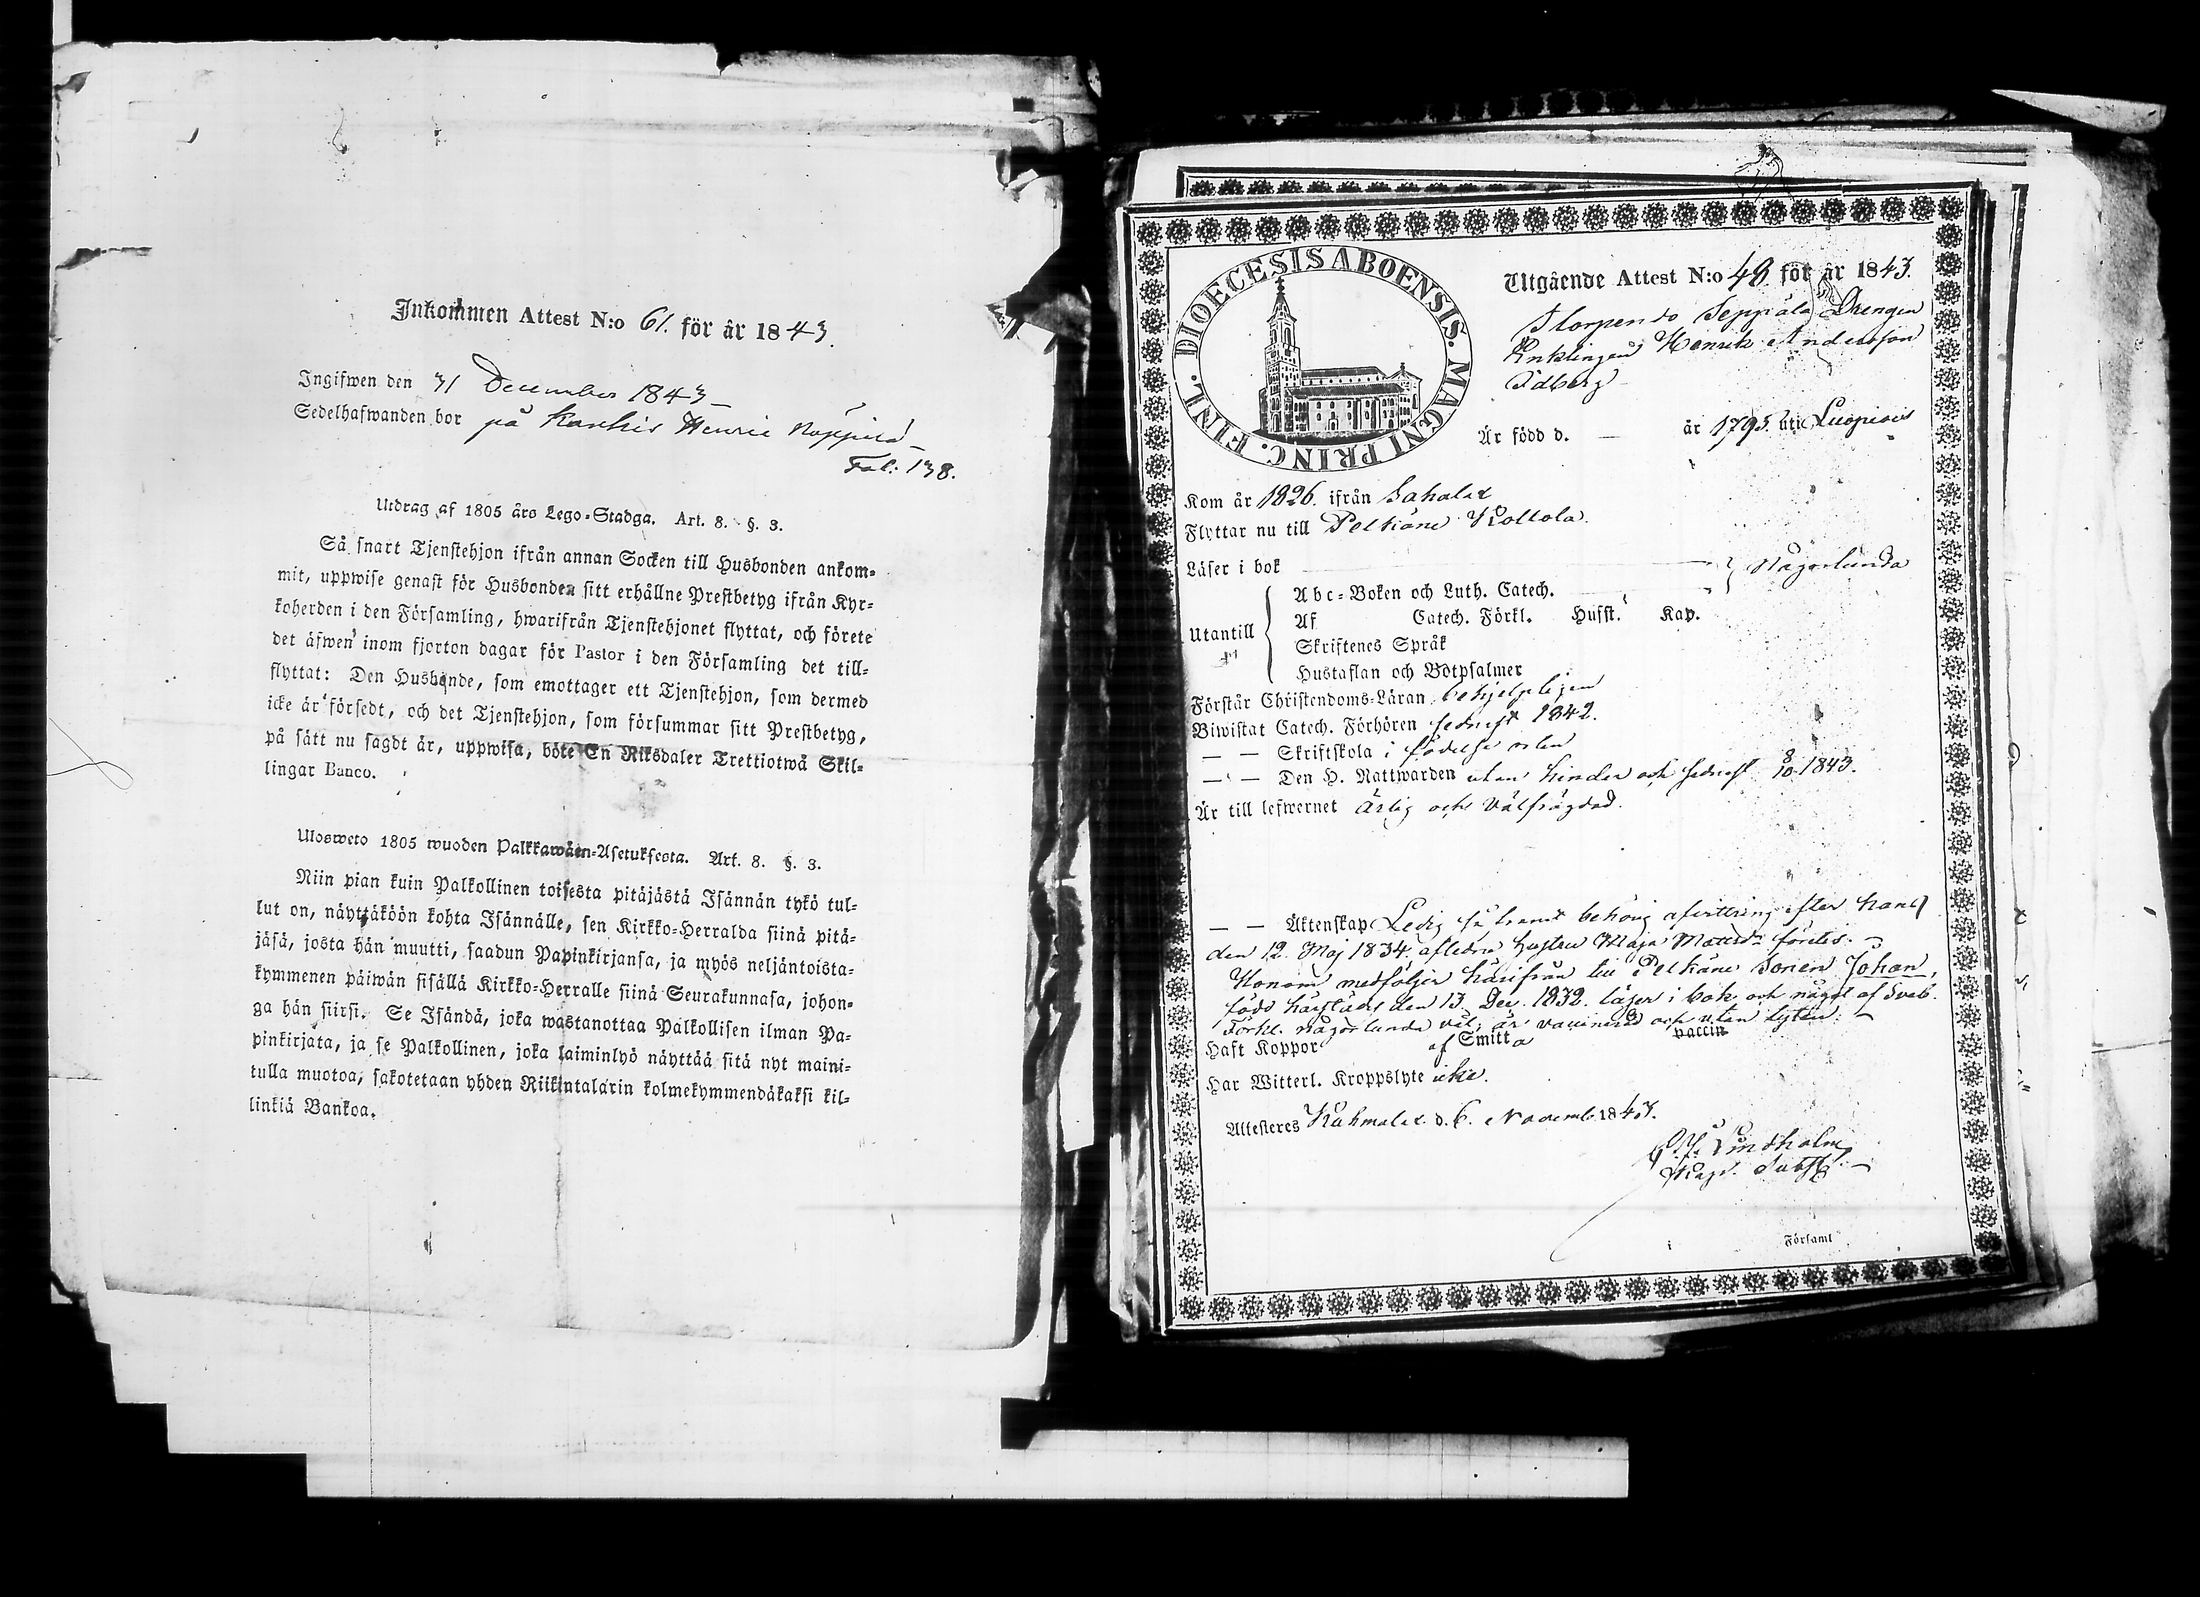 Inkommen Attest N:o 61. för år 1843.
Ingifwen den 31 December 1843
Sedelhafwanden bor på Henric
Fol: 138.
Utdrag af 1805 års Lego-Stadga. Art. 8. §. 3.
Så snart Tjenstehjon ifrån annan Socken till Husbonden ankom-
mit, uppwise genast för Husbonden sitt erhållne Prestbetyg ifrån Kyr-
koherden i den Församling, hwarifrån Tjenstehjonet flyttat, och förete
det äfwen inom fjorton dagar för Pastor i den Församling det till-
flyttat: Den Husbonde, som emottager ett Tjenstehjon, som dermed
icke är försedt, och det Tjenstehjon, som försummar sitt Prestbetyg,
på sätt nu sagdt är, uppwisa, böte En Riksdaler Trettiotwå Skil-
lingar Banco.
Ulosweto 1805 wuoden Palkkawäen-Asetuksesta. Art. 8. §. 3.
Niin pian kuin Palkollinen toisesta pitäjästä Isännän tykö tul-
lut on, näyttäköön kohta Isännälle, sen Kirkko-Herralda siinä pitä-
jäsä, josta hän muutti, saadun Papinkirjansa, ja myös neljäntoista-
kymmenen päiwän sisällä Kirkko-Herralle siinä Seurakunnasa, johon-
ga hän siirsi. Se Isändä, joka wastanottaa Palkollisen ilman Pa-
pinkirjata, ja se Palkollinen, joka laiminlyö näyttää sitä nyt maini-
tulla muotoa, sakotetaan yhden Riikintalarin kolmekymmendäkaksi kil-
linkiä Bankoa.
DIOECESIS ABOENSIS. MAGNI PRINC. FINL.
Utgående Attest N:o 48 för år 1843.
Seppälä Drengen
Enklingen Henrik Andersson
Idberg
Är född d. — år 1795. uti Luopiois
Kom år 1826. ifrån Sahalax
Flyttar nu till Pelkäne Kollola.
Läser i bok
Någorlunda
Abc-Boken och Luth. Catech.
Utantill
Af Catech. Förkl. Husst. Kap.
Skriftenes Språk
Hustaflan och Botpsalmer
Förstår Christendoms-Läran behjelpligen
Biwistat Catech. Förhören sednast 1842.
— — Skriftskola i födelse orten
— — Den H. Nattwarden utan hinder och sednast 8/10 1843.
Är till lefwernet ärlig och välfrägdad.
— — Äktenskap Ledig så framt behörig afwittring efter hans
den 12. Maj 1834. aflidna hustru Maja Matts dr företes.
Honom medföljer härifrån till Pelkäne Sonen Johan,
född härstädes den 13. Dec. 1832. läser i bok och något af Sveb.
Förkl. någorlunda väl, är vaccinerad och utan lyten.
Haft Koppor af Smitta vaccin
Har Witterl. Kroppslyte icke.
Attesteres Kuhmalax d. 6. Novemb. 1843.
Lindholm
i Församl